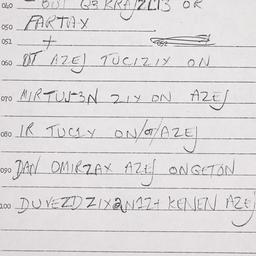 040 - OUT QE KRAJZLIJ OR
050 FARTUAX
051 +
060 OT AZEJ TUCIZIX ON
070 MIRTUU-3N ZIX ON AZEJ
080 IR TUCIX ON/OT/AZEJ
090 DAN OMIRZAX AZEJ ONGETON
100 DUVEZDZIX2N1Z+ KENEN AZEJ